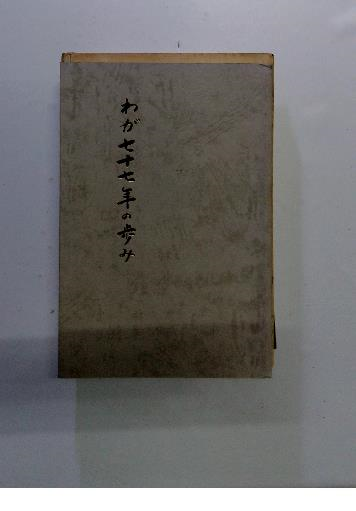 わが七十七年の歩み